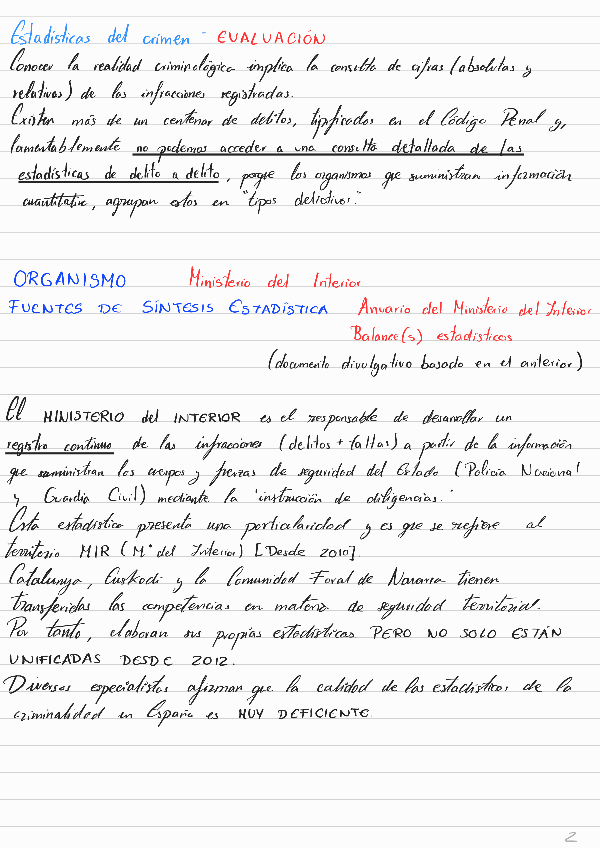 Estadísticas del crimen - EVALUACIÓN
Conocer la realidad criminológica implica la consulta de cifras (absolutas y
relativas) de las infracciones registradas.
Existen más de un centenar de delitos, tipificados en el Código Penal y,
lamentablemente no podemos acceder a una consulta detallada de las
estadísticas de delito a delito, porque los organismos que suministran información
cuantitativa, agrupan estos en "tipos delictivos".
ORGANISMO Ministerio del Interior
FUENTES DE SÍNTESIS ESTADÍSTICA Anuario del Ministerio del Interior
Balance(s) estadísticos
(documento divulgativo basado en el anterior)
El MINISTERIO del INTERIOR es el responsable de desarrollar un
registro continuo de las infracciones (delitos + faltas) a partir de la información
que suministran los cuerpos y fuerzas de seguridad del Estado (Policía Nacional
y Guardia Civil) mediante la "instrucción de diligencias."
Esta estadística presenta una particularidad y es que se refiere al
territorio MIR (Mº del Interior) [Desde 2010].
Catalunya, Euskadi y la Comunidad Foral de Navarra tienen
transferidas las competencias en materia de seguridad territorial.
Por tanto, elaboran sus propias estadísticas PERO NO SOLO ESTÁN
UNIFICADAS DESDE 2012.
Diversos especialistas afirman que la calidad de las estadísticas de la
criminalidad en España es MUY DEFICIENTE.
2